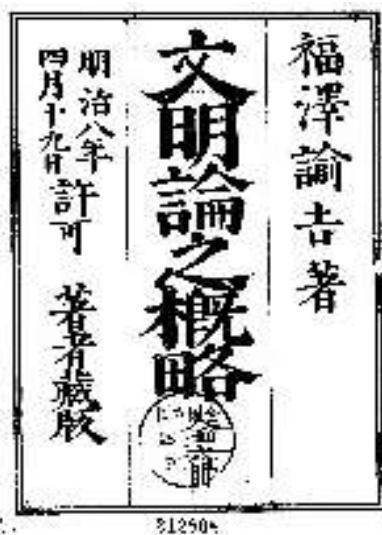 福澤諭吉著
文明論之概略
明治八年
四月十九日
許可
著者藏版